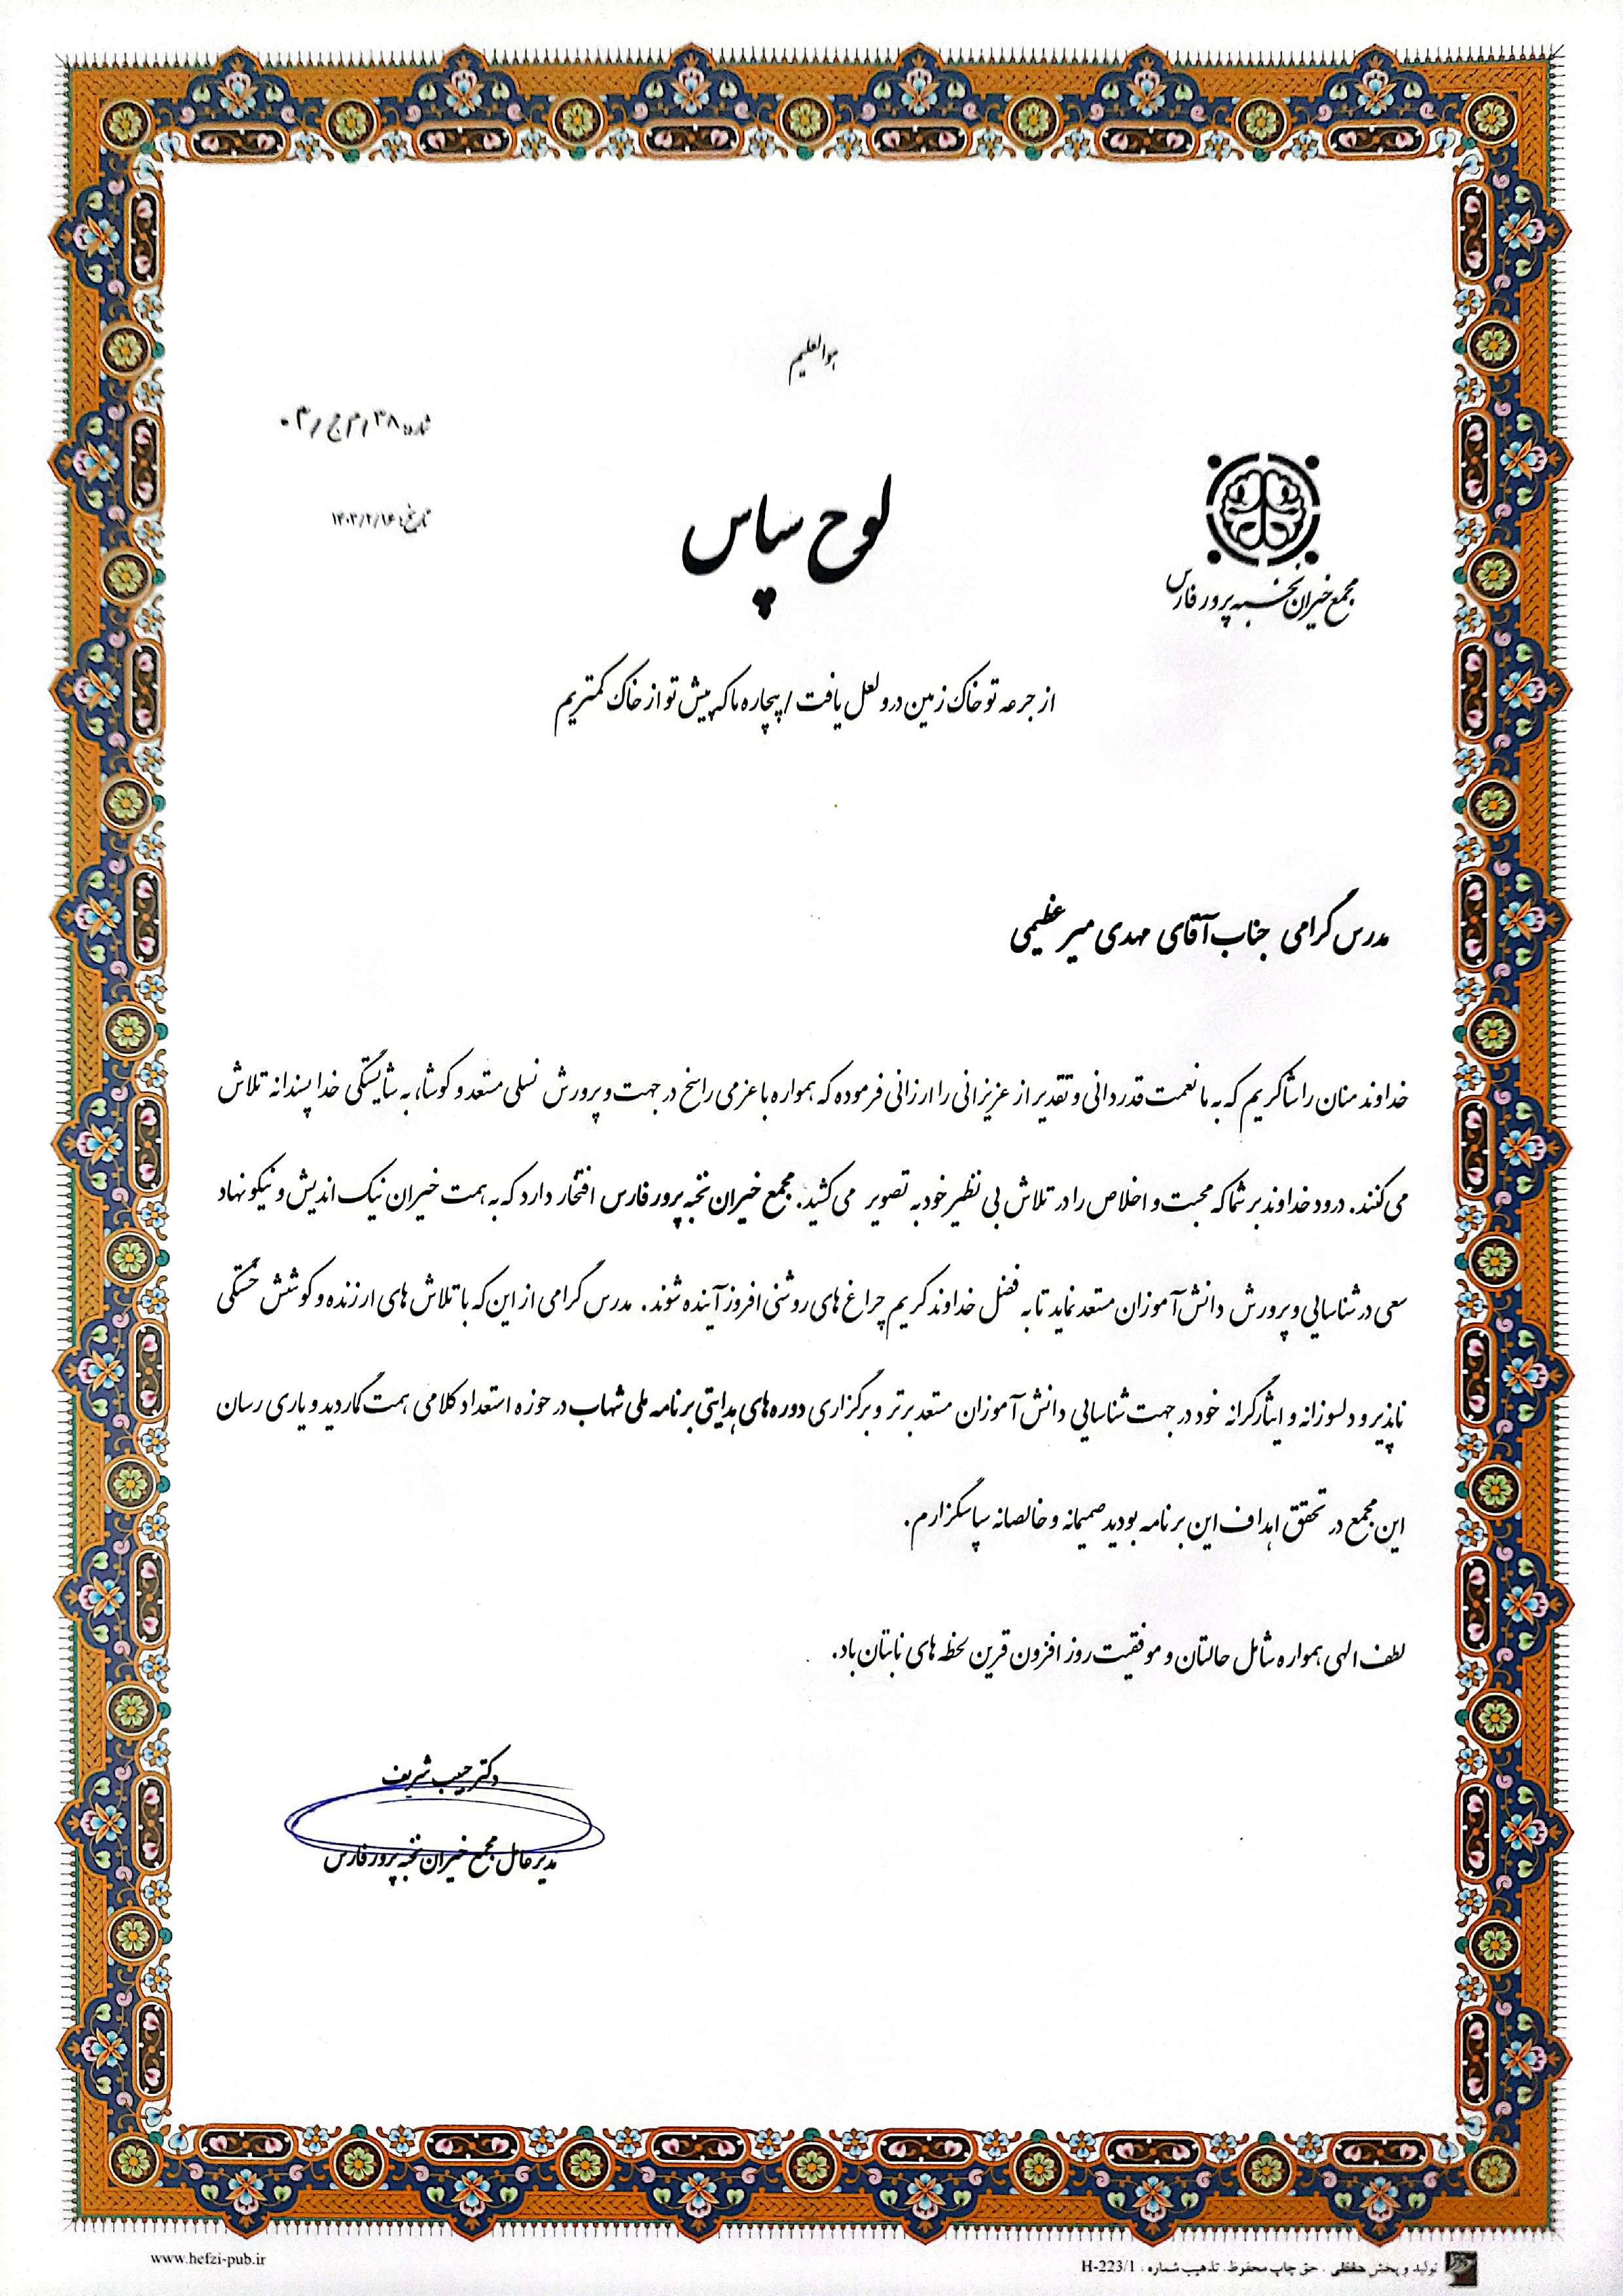 هوالعلیم
شماره: ۳۸/م ج/۰۳
تاریخ: ۱۴۰۳/۲/۱۶
لوح سپاس
مجمع خیران نخبه پرور فارس
از جرعه تو خاک زمین در و لعل یافت / بیچاره ما که پیش تو از خاک کمتریم
مدرس گرامی جناب آقای مهدی میر عظیمی
خداوند منان را شاکریم که به ما نعمت قدردانی و تقدیر از عزیزانی را ارزانی فرموده که همواره با عزمی راسخ در جهت و پرورش نسلی مستعد و کوشا، به شایستگی خدا پسندانه تلاش
می کنند. درود خداوند بر شما که محبت و اخلاص را در تلاش بی نظیر خود به تصویر می کشید. مجمع خیران نخبه پرور فارس افتخار دارد که به همت خیران نیک اندیش و نیکو نهاد
سعی در شناسایی و پرورش دانش آموزان مستعد نماید تا به فضل خداوند کریم چراغ های روشنی افروز آینده شوند. مدرس گرامی از این که با تلاش های ارزنده و کوشش خستگی
ناپذیر و دلسوزانه و ایثارگرانه خود در جهت شناسایی دانش آموزان مستعد برتر و برگزاری دوره های هدایتی برنامه ملی شهاب در حوزه استعداد کلامی همت گماردید و یاری رسان
این مجمع در تحقق اهداف این برنامه بودید صمیمانه و خالصانه سپاسگزارم.
لطف الهی همواره شامل حالتان و موفقیت روز افزون قرین لحظه های نابتان باد.
دکتر حبیب شریف
مدیر عامل مجمع خیران نخبه پرور فارس
www.hefzi-pub.ir
تولید و پخش حفظی . حق چاپ محفوظ. تذهیب شماره : H-223/1